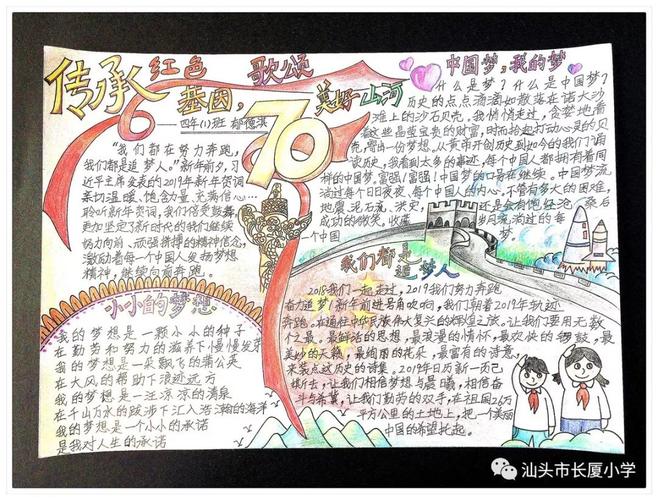 传承红色基因,
歌颂美好山河
70
四年(1)班
"我们都在努力奔跑,
我们都是追梦人。"新年前夕,习
近平主席发表的2019年新年贺词
亲切温暖、饱含力量、充满信心…
聆听新年贺词,我们倍受鼓舞,
更加坚定了新时代的我们继续
努力向前、顽强拼搏的精神信念,
激励着每一个中国人发扬梦想
精神,继续向前奔跑。
小小的梦想
我的梦想是一颗小小的种子
在勤劳和努力的滋养下慢慢发芽
我的梦想是一朵飘飞的蒲公英
在大风的帮助下浪迹远方
我的梦想是一汪凉凉的清泉
在千山万水的跋涉下汇入浩瀚的海洋
我的梦想是一个小小的承诺
是我对人生的承诺
中国梦,我的梦
什么是梦?什么是中国梦?
历史的点点滴滴如散落在诺大沙
滩上的沙石贝壳。我悄悄走过,贪婪地看
着这些晶莹宝贵的财富,时而拾起打动心灵的贝
壳,寄出一份梦想。从黄帝开创历史到如今的我们诵
读历史,我看到太多的事迹,每个中国人都拥有着同
样的中国梦,富强!富强!中国梦的口号在继续。中国梦流
淌过每个日日夜夜、每个中国人的内心,不管有多大的困难,
地震、泥石流、洪灾,
我们都是追梦人
2018我们一起走过,2019我们努力奔跑
奋力追梦!新年前进号角吹响,我们朝着2019年轨迹
奔跑。在通往中华民族伟大复兴的辉煌之旅。让我们要用无数
个之最。最鲜活的思想,最浪漫的情怀,最欢快的锣鼓,最
美妙的天籁,最绚丽的花朵,最富有的诗意,
来装点这历史的诗集。2019年日历新一页已
被折去,让我们相信梦想与晨曦,相信奋
斗与希冀,让我们勤劳的双手,在祖国
平方公里的土地上,把一个美丽
中国的希望托起。
汕头市长厦小学